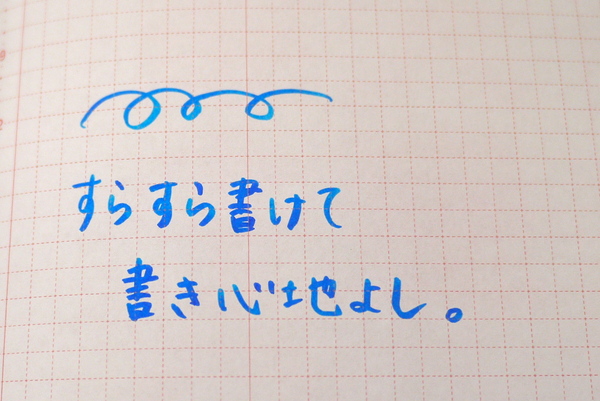 すらすら書けて
書き心地よし。